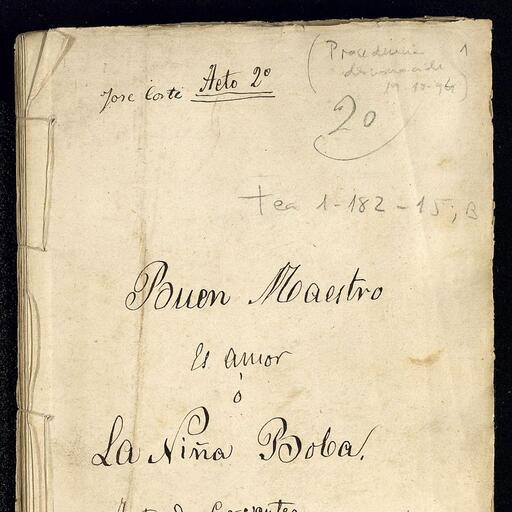 Jose Corte Acto 2º
(Procedencia 1
desconocida
20
Tea 1-182-15, B
Buen Maestro
Es amor
ó
LA Niña Boba.